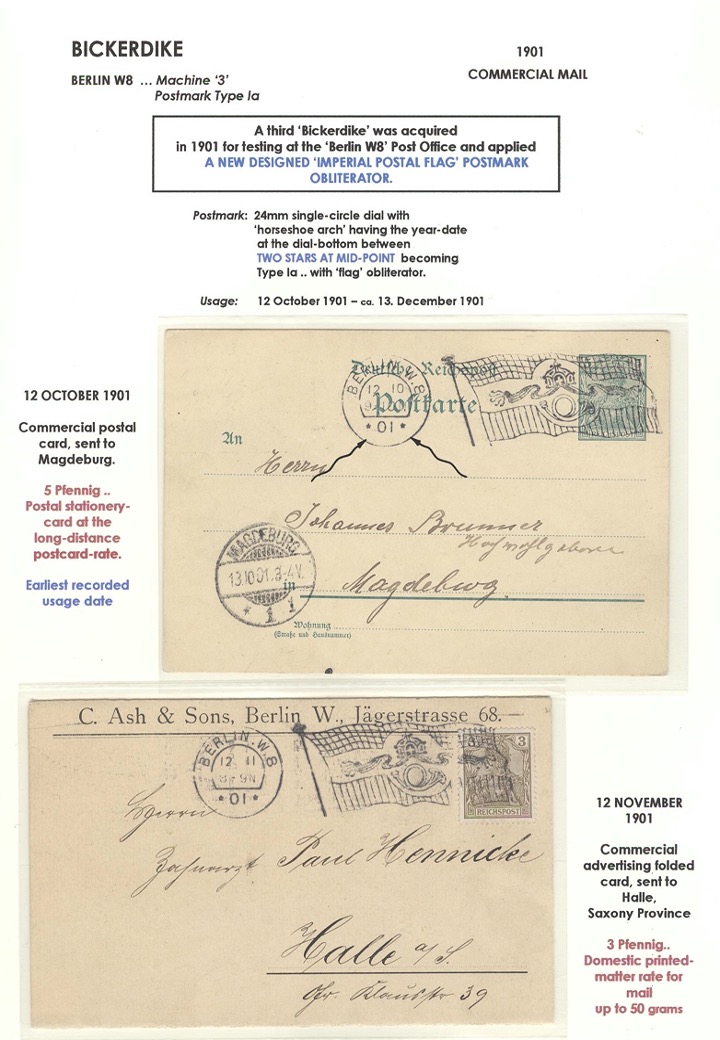 BICKERDIKE
1901
BERLIN W8 ... Machine ‘3’
COMMERCIAL MAIL
Postmark Type Ia
A third ‘Bickerdike’ was acquired
in 1901 for testing at the ‘Berlin W8’ Post Office and applied
A NEW DESIGNED ‘IMPERIAL POSTAL FLAG’ POSTMARK
OBLITERATOR.
Postmark: 24mm single-circle dial with
‘horseshoe arch’ having the year-date
at the dial-bottom between
TWO STARS AT MID-POINT becoming
Type Ia .. with ‘flag’ obliterator.
Usage: 12 October 1901 – ca. 13. December 1901
12 OCTOBER 1901
Commercial postal
card, sent to
Magdeburg.
5 Pfennig ..
Postal stationery-
card at the
long-distance
postcard-rate.
Earliest recorded
usage date
Deutsche Reichspost
Postkarte
BERLIN.W.8
12 10
* 01 *
An
Herrn
Johannes Brunner
MAGDEBURG
13.10.01.3-4V.
* 1 i
in
Magdeburg.
Wohnung
(Straße und Hausnummer)
C. Ash & Sons, Berlin W., Jägerstrasse 68.
BERLIN.W.8
12 11
8-9N
* 01 *
3 3
REICHSPOST
Herrn
Zahnarzt Paul Hennicke
Halle a/S.
Gr. Klausstr 39
12 NOVEMBER
1901
Commercial
advertising folded
card, sent to
Halle,
Saxony Province
3 Pfennig..
Domestic printed-
matter rate for
mail
up to 50 grams